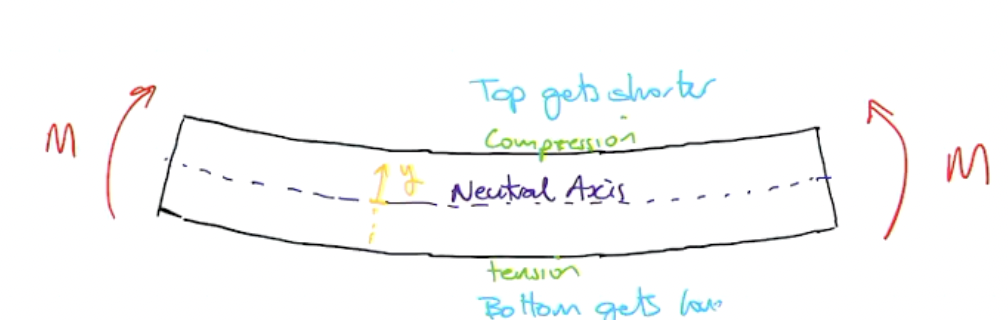 Top gets shorter
Compression
M
y
Neutral Axis
M
tension
Bottom gets